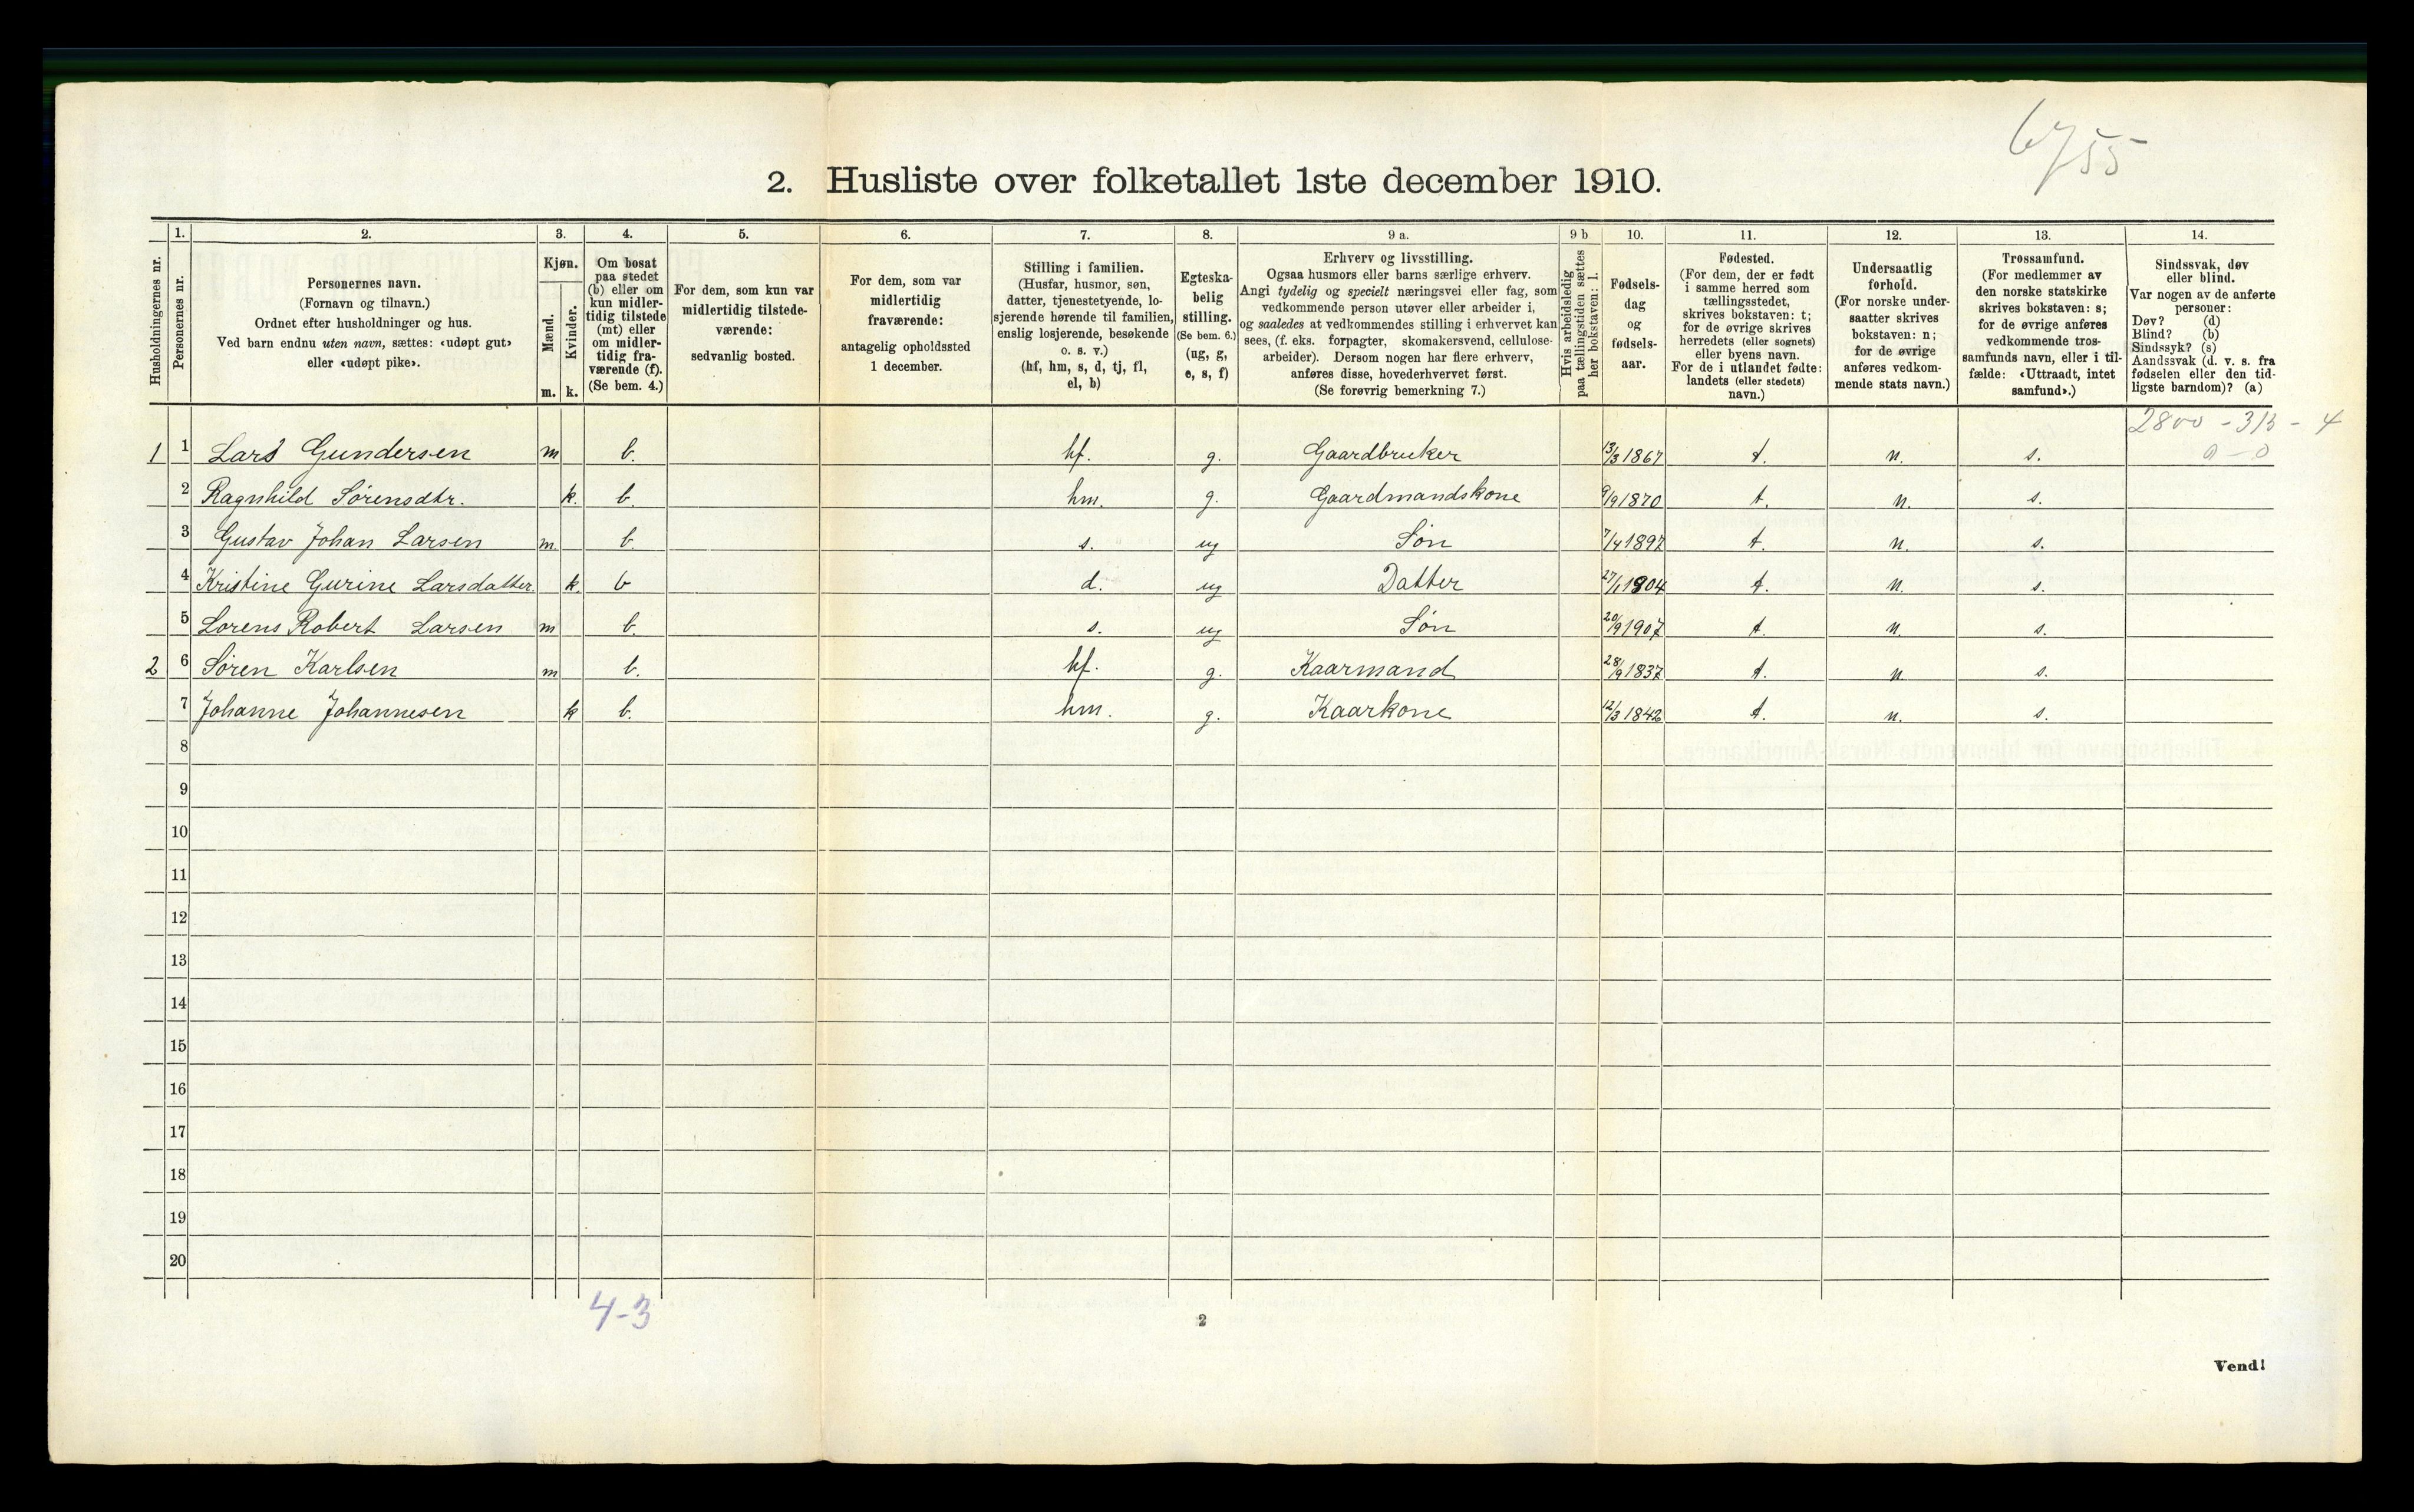 6755
2. Husliste over folketallet 1ste december 1910.
Husholdningernes nr.
1. 2. 3. 4. 5. 6. 7. 8. 9 a. 9 b 10. 11. 12. 13. 14.
Personernes nr.
Personernes navn.
(Fornavn og tilnavn.)
Ordnet efter husholdninger og hus.
Ved barn endnu uten navn, sættes: «udøpt gut»
eller «udøpt pike».
Kjøn.
Mænd.
Kvinder.
m. k.
Om bosat
paa stedet
(b) eller om
kun midler-
tidig tilstede
(mt) eller
om midler-
tidig fra-
værende (f).
(Se bem. 4.)
For dem, som kun var
midlertidig tilstede-
værende:
sedvanlig bosted.
For dem, som var
midlertidig
fraværende:
antagelig opholdssted
1 december.
Stilling i familien.
(Husfar, husmor, søn,
datter, tjenestetyende, lo-
sjerende hørende til familien,
enslig losjerende, besøkende
o. s. v.)
(hf, hm, s, d, tj, fl,
el, b)
Egteska-
belig
stilling.
(Se bem. 6.)
(ug, g,
e, s, f)
Erhverv og livsstilling.
Ogsaa husmors eller barns særlige erhverv.
Angi tydelig og specielt næringsvei eller fag, som
vedkommende person utøver eller arbeider i,
og saaledes at vedkommendes stilling i erhvervet kan
sees, (f. eks. forpagter, skomakersvend, cellulose-
arbeider). Dersom nogen har flere erhverv,
anføres disse, hovederhvervet først.
(Se forøvrig bemerkning 7.)
Hvis arbeidsledig
paa tællingstiden sættes
her bokstaven: l.
Fødsels-
dag
og
fødsels-
aar.
Fødested.
(For dem, der er født
i samme herred som
tællingsstedet,
skrives bokstaven: t;
for de øvrige skrives
herredets (eller sognets)
eller byens navn.
For de i utlandet fødte:
landets (eller stedets)
navn.)
Undersaatlig
forhold.
(For norske under-
saatter skrives
bokstaven: n;
for de øvrige
anføres vedkom-
mende stats navn.)
Trossamfund.
(For medlemmer av
den norske statskirke
skrives bokstaven: s;
for de øvrige anføres
vedkommende tros-
samfunds navn, eller i til-
fælde: «Uttraadt, intet
samfund».)
Sindssvak, døv
eller blind.
Var nogen av de anførte
personer:
Døv? (d)
Blind? (b)
Sindssyk? (s)
Aandssvak (d. v. s. fra
fødselen eller den tid-
ligste barndom)? (a)
2800 - 313 - 4
0 - 0
1 1 Lars Gundersen m b. hf. g. Gaardbruker 13/3 1867 t. n. s.
2 Ragnhild Sørensdtr. k. b. hm. g. Gaardmandskone 9/9 1870 t. n. s.
3 Gustav Johan Larsen m. b. s. ug Søn 7/4 1897 t. n. s.
4 Kristine Gurine Larsdatter. k. b d. ug Datter 27/1 1904 t. n. s.
5 Lorens Robert Larsen m b. s. ug Søn 20/9 1907 t. n. s.
2 6 Søren Karlsen m b. hf. g. Kaarmand 28/9 1837 t. n. s.
7 Johanne Johannesen k b. hm. g. Kaarkone 12/3 1842 t. n. s.
8
9
10
11
12
13
14
15
16
17
18
19
20
4-3
2
Vend!